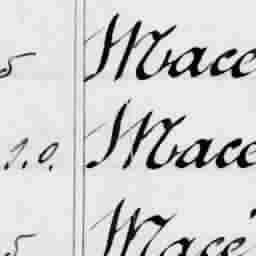 5 Mace
9.0. Mace
5 Macé